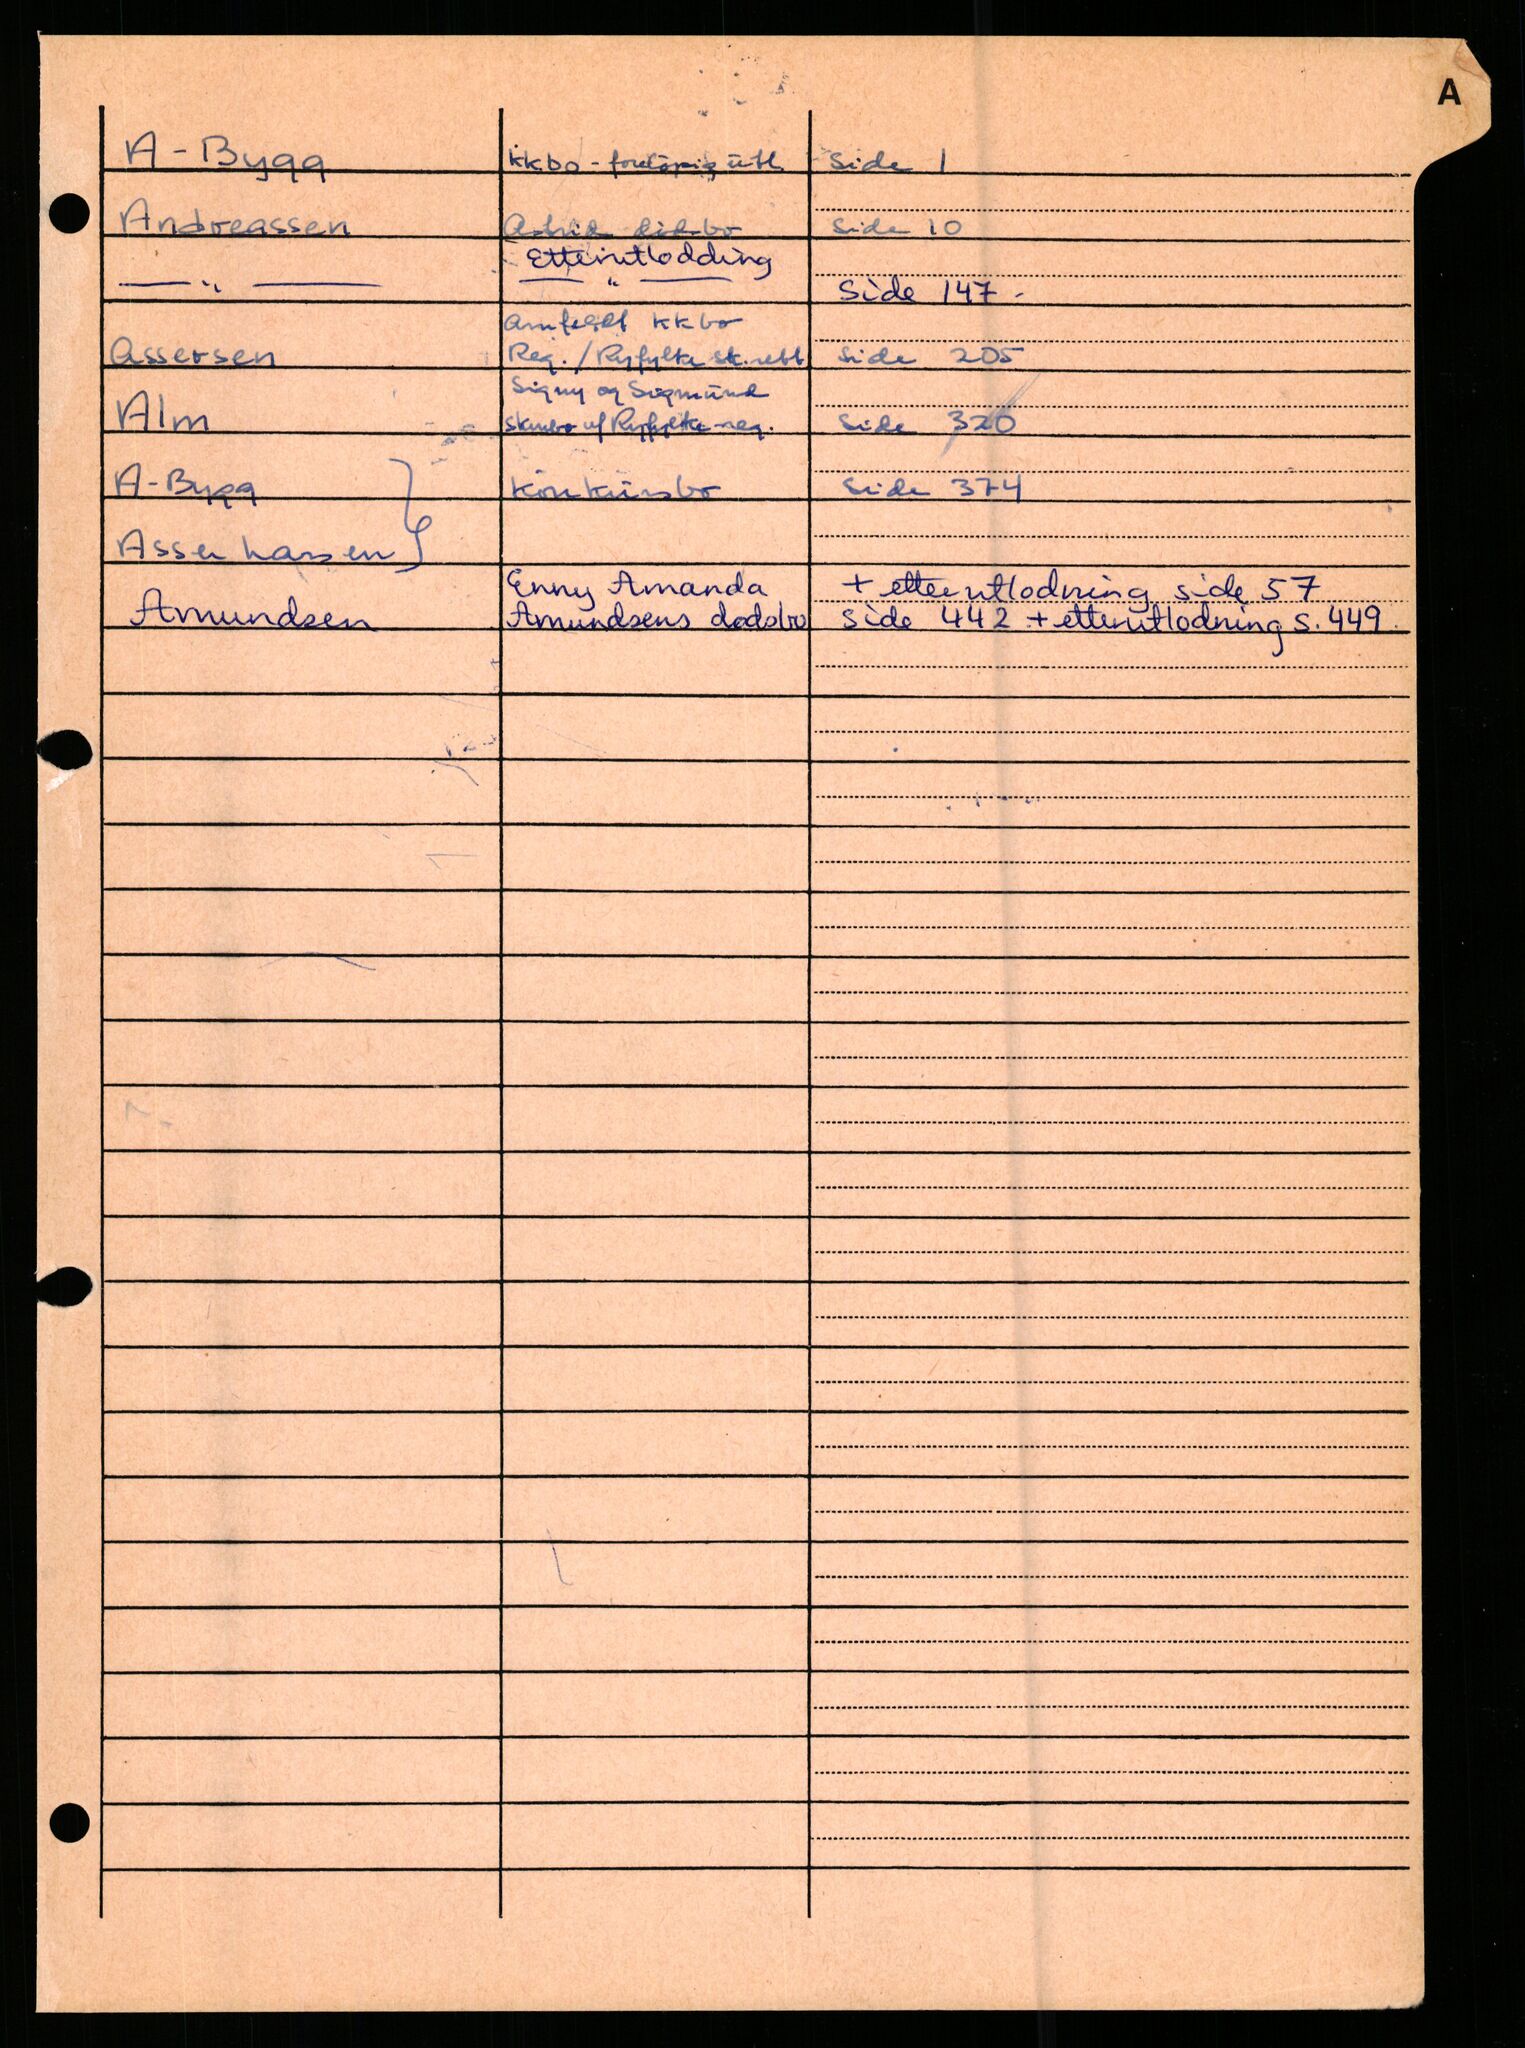 A
A-Bygg kkbo - foreløpig utl. side 1
Andreassen Astrid dødsbo side 10
— " — Etterutlodding
— " — side 147.
Arnfeldt kkbo
Assersen Reg./Ryfylke sk.rett side 205
Signy og Sigmund
Alm skmbo v/ Ryfylke reg. side 320
A-Bygg konkursbo side 374
Asser Larsen
Enny Amanda + etterutlodning side 57
Amundsen Amundsens dødsbo side 442 + etterutlodning s. 449.